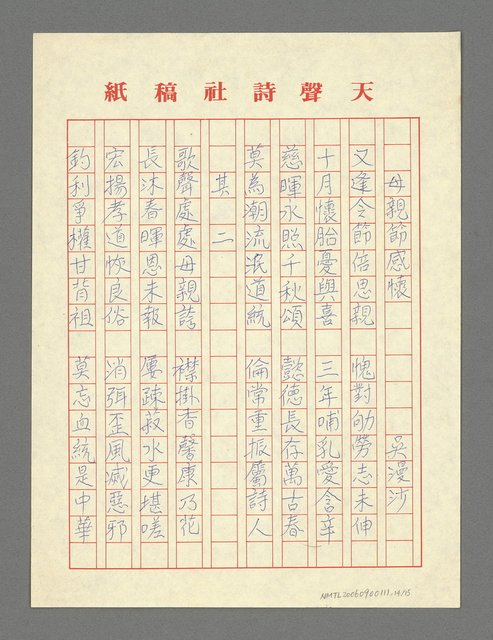 天聲詩社稿紙
母親節感懷 吳漫沙
又逢令節倍思親 愧對劬勞志未伸
十月懷胎憂與喜 三年哺乳愛含辛
慈暉永照千秋頌 懿德長存萬古春
莫為潮流泯道統 倫常重振屬詩人
其二
歌聲處處母親誇 襟掛香馨康乃花
長沐春暉恩未報 屢疎菽水更堪嗟
宏揚孝道恢良俗 消弭歪風滅惡邪
釣利爭權甘背祖 莫忘血統是中華
NMTL20060900111-14/15